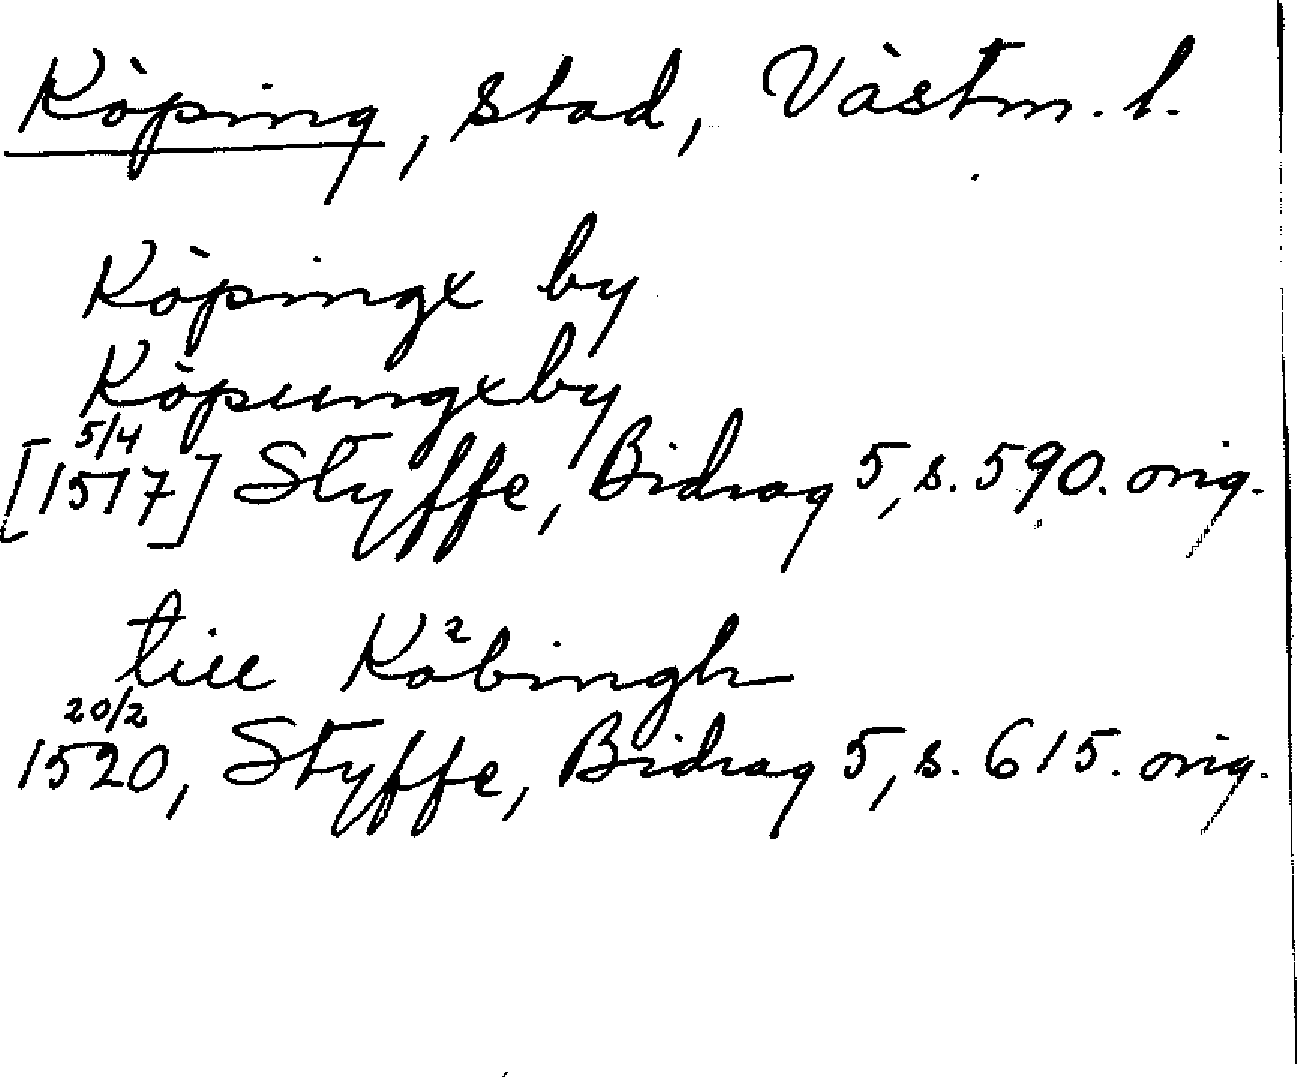 Köping, stad, Västm. l.
Köpingx by
Köpungxby
5/4
[1517] Styffe, Bidrag 5, s. 590. orig.
till Köbingh
20/2
1520, Styffe, Bidrag 5, s. 615. orig.